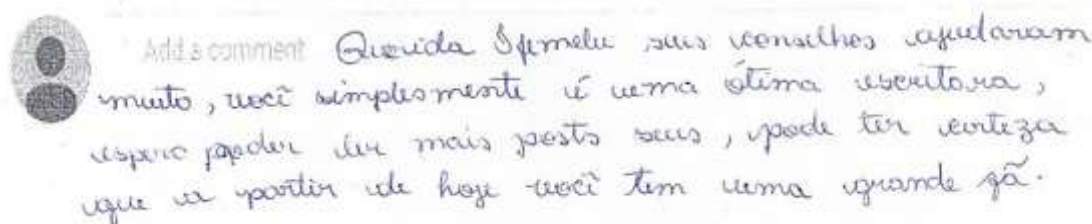 Add a comment Querida Ifemelu seus conselhos ajudaram
muito, você simplesmente é uma ótima escritora,
espero poder ler mais posts seus, pode ter certeza
que a partir de hoje você tem uma grande fã.